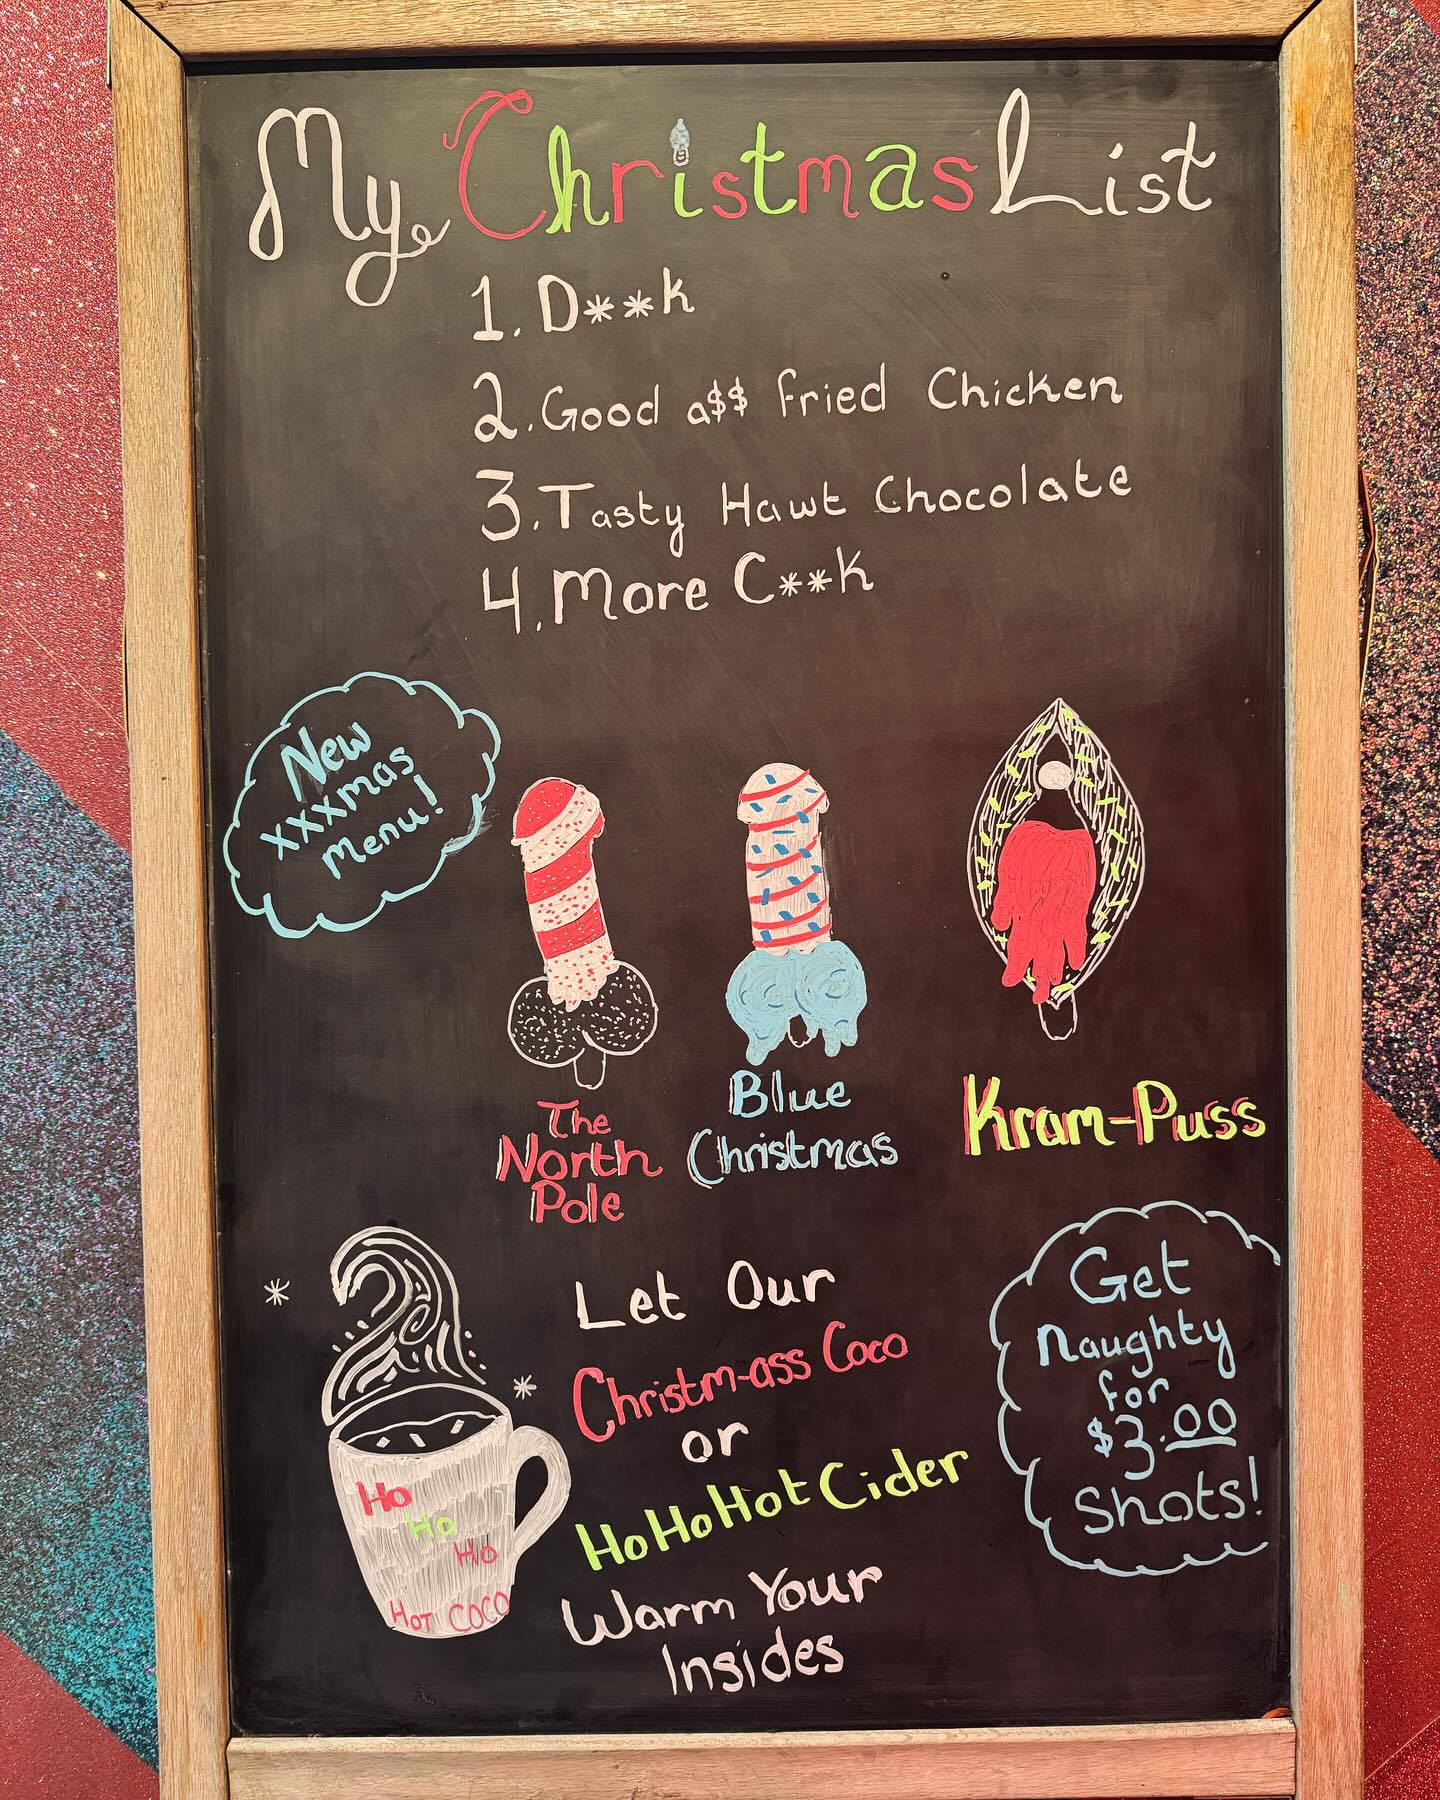 My Christmas List
1. D**k
2. Good a$$ fried Chicken
3. Tasty Hawt Chocolate
4. More C**k
New
xxxmas
Menu!
The
North
Pole
Blue
Christmas
Kram-Puss
Let Our
Christm-ass Coco
or
HoHoHot Cider
Warm Your
Insides
Ho
Ho
Ho
Hot COCO
Get
Naughty
for
$3.00
Shots!